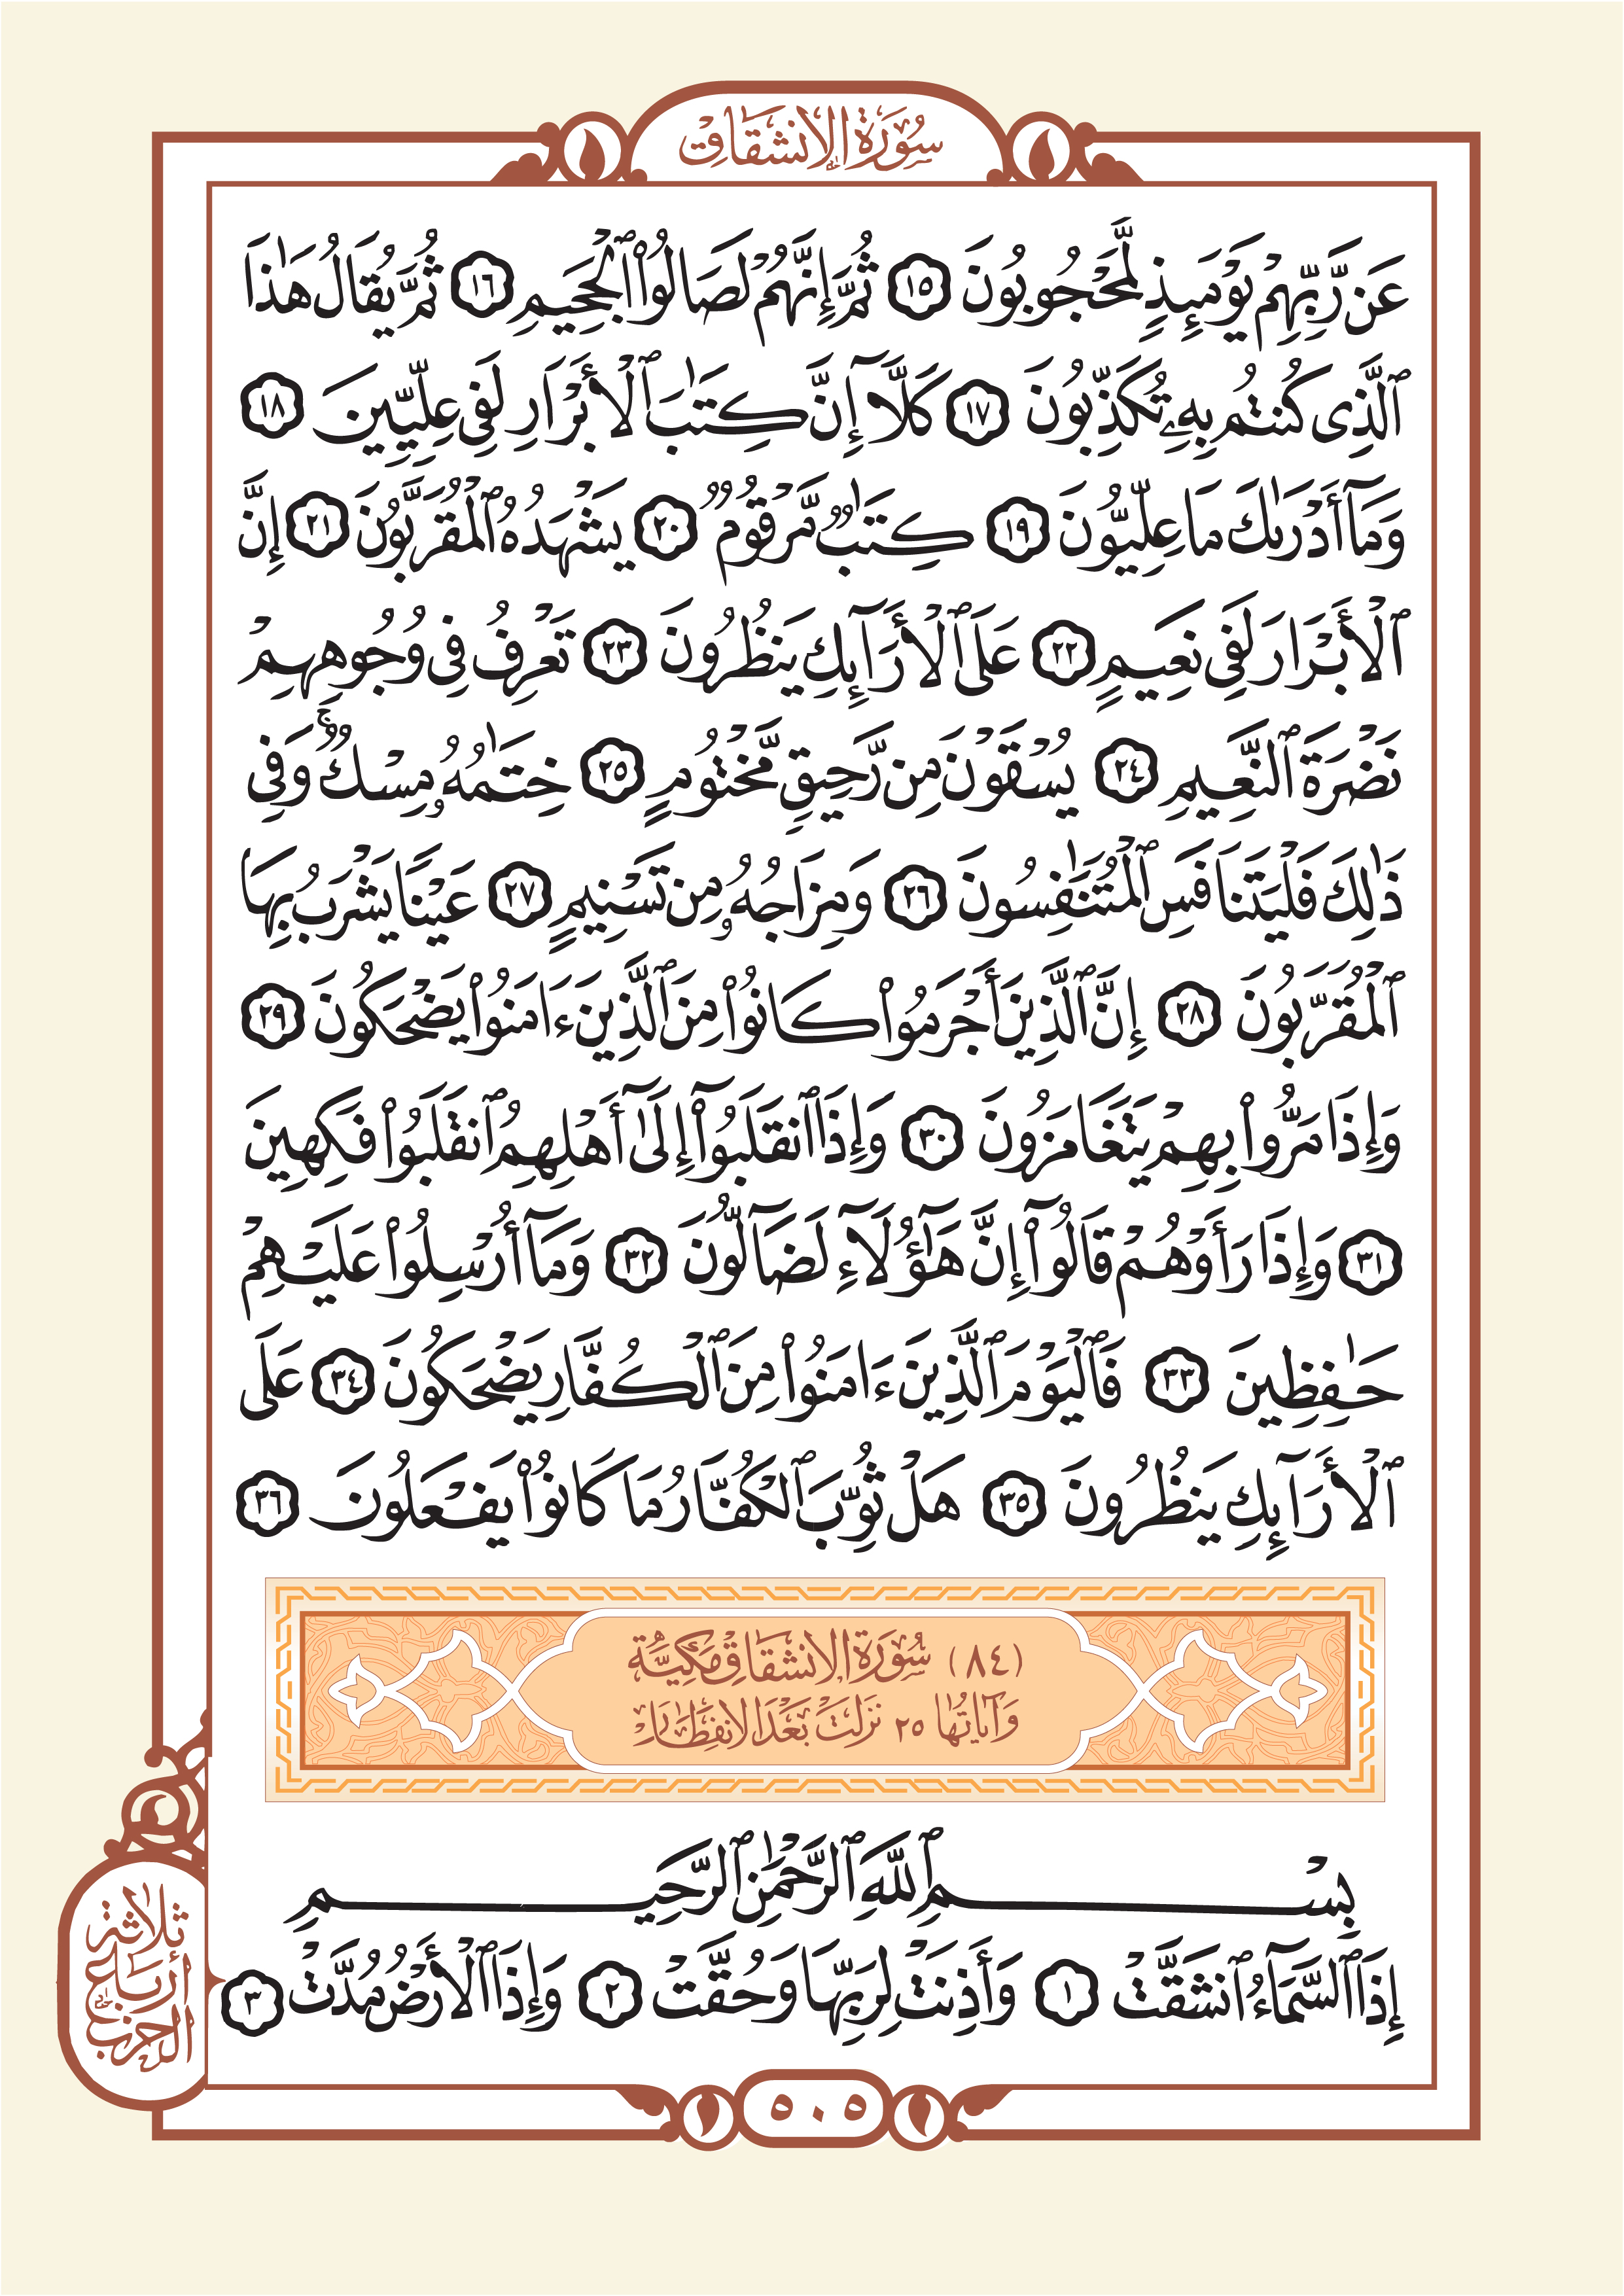 سُورَةُ الِانشِقَاقِ
عَن رَّبِّهِمۡ يَوۡمَئِذٖ لَّمَحۡجُوبُونَ ١٥ ثُمَّ إِنَّهُمۡ لَصَالُواْ ٱلۡجَحِيمِ ١٦ ثُمَّ يُقَالُ هَٰذَا
ٱلَّذِي كُنتُم بِهِۦ تُكَذِّبُونَ ١٧ كَلَّآ إِنَّ كِتَٰبَ ٱلۡأَبۡرَارِ لَفِي عِلِّيِّينَ ١٨
وَمَآ أَدۡرَىٰكَ مَا عِلِّيُّونَ ١٩ كِتَٰبٞ مَّرۡقُومٞ ٢٠ يَشۡهَدُهُ ٱلۡمُقَرَّبُونَ ٢١ إِنَّ
ٱلۡأَبۡرَارَ لَفِي نَعِيمٍ ٢٢ عَلَى ٱلۡأَرَآئِكِ يَنظُرُونَ ٢٣ تَعۡرِفُ فِي وُجُوهِهِمۡ
نَضۡرَةَ ٱلنَّعِيمِ ٢٤ يُسۡقَوۡنَ مِن رَّحِيقٖ مَّخۡتُومٍ ٢٥ خِتَٰمُهُۥ مِسۡكٞۚ وَفِي
ذَٰلِكَ فَلۡيَتَنَافَسِ ٱلۡمُتَنَٰفِسُونَ ٢٦ وَمِزَاجُهُۥ مِن تَسۡنِيمٍ ٢٧ عَيۡنٗا يَشۡرَبُ بِهَا
ٱلۡمُقَرَّبُونَ ٢٨ إِنَّ ٱلَّذِينَ أَجۡرَمُواْ كَانُواْ مِنَ ٱلَّذِينَ ءَامَنُواْ يَضۡحَكُونَ ٢٩
وَإِذَا مَرُّواْ بِهِمۡ يَتَغَامَزُونَ ٣٠ وَإِذَا ٱنقَلَبُوٓاْ إِلَىٰٓ أَهۡلِهِمُ ٱنقَلَبُواْ فَكِهِينَ
٣١ وَإِذَا رَأَوۡهُمۡ قَالُوٓاْ إِنَّ هَٰٓؤُلَآءِ لَضَآلُّونَ ٣٢ وَمَآ أُرۡسِلُواْ عَلَيۡهِمۡ
حَٰفِظِينَ ٣٣ فَٱلۡيَوۡمَ ٱلَّذِينَ ءَامَنُواْ مِنَ ٱلۡكُفَّارِ يَضۡحَكُونَ ٣٤ عَلَى
ٱلۡأَرَآئِكِ يَنظُرُونَ ٣٥ هَلۡ ثُوِّبَ ٱلۡكُفَّارُ مَا كَانُواْ يَفۡعَلُونَ ٣٦
(٨٤) سُورَةُ الِانشِقَاقِ مَكِّيَّة
وَآيَاتُهَا ٢٥ نَزَلَتْ بَعْدَ الِانفِطَار
بِسۡمِ ٱللَّهِ ٱلرَّحۡمَٰنِ ٱلرَّحِيمِ
إِذَا ٱلسَّمَآءُ ٱنشَقَّتۡ ١ وَأَذِنَتۡ لِرَبِّهَا وَحُقَّتۡ ٢ وَإِذَا ٱلۡأَرۡضُ مُدَّتۡ ٣
ثلاثة
أرباع
الحزب
٥٠٥